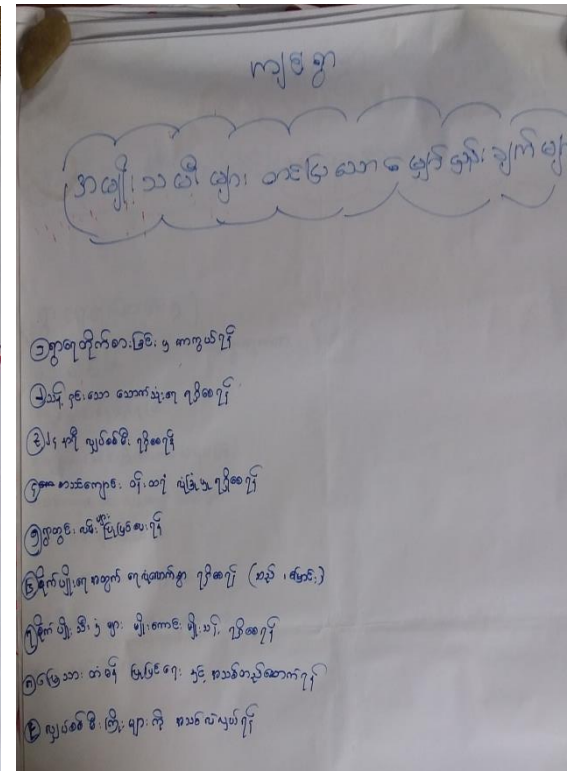 ကျစ်ရွာ
အမျိုးသမီးများ တင်ပြသော မျှော်မှန်းချက်များ
၁ ရွာရေတိုက်စားခြင်းမှ ကာကွယ်ရန်
၂ သန့်ရှင်းသော သောက်သုံးရေ ရရှိစေရန်
၃ ၂၄ နာရီ လျှပ်စစ်မီး ရရှိစေရန်
၄ စာသင်ကျောင်း ဝန်းထရံ လုံခြုံမှု ရရှိစေရန်
၅ ရွာတွင်း လမ်းများ ပြုပြင်ပေးရန်
၆ စိုက်ပျိုးရေးအတွက် ရေလုံလောက်စွာ ရရှိစေရန် (ဆည် ၊ မြောင်း)
၇ စိုက်ပျိုးသီးနှံများ မျိုးကောင်းမျိုးသန့် ရရှိစေရန်
၈ မြေသားတံမံ ပြုပြင်ရေး နှင့် အသစ်တည်ဆောက်ရန်
၉ လျှပ်စစ်မီးကြိုးများကို အသစ်လဲလှယ်ရန်